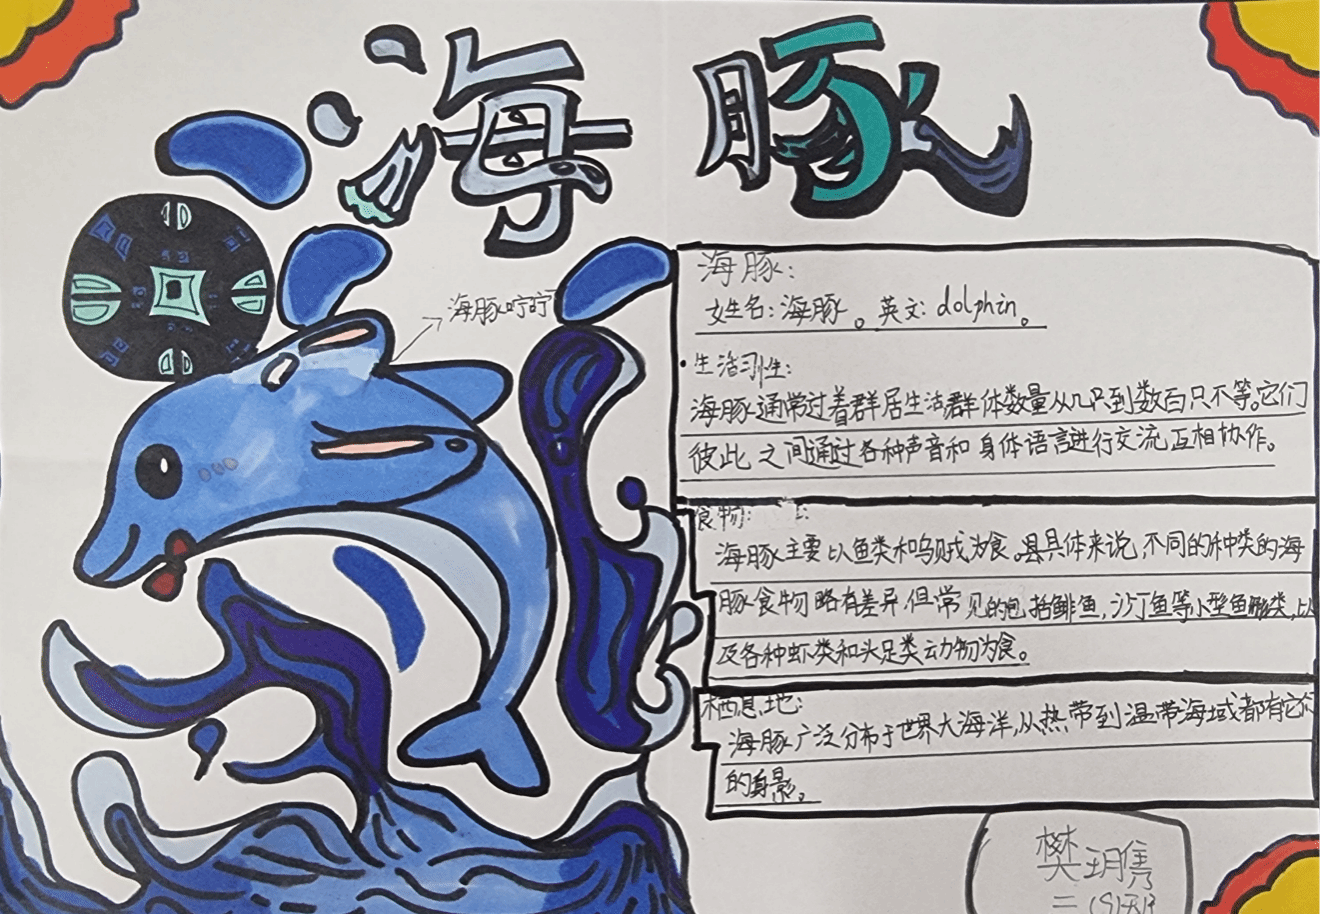 海豚
海豚咛咛
海豚:
女生名:海豚。英文:dolphin。
·生活习性:
海豚通常过着群居生活群体数量从几只到数百只不等。它们
彼此之间通过各种声音和身体语言进行交流,互相协作。
食物:
海豚主要以鱼类和乌贼为食。具体来说,不同的种类的海
豚食物略有差异,但常见的包括鲱鱼,沙丁鱼等小型鱼类,以
及各种虾类和头足类动物为食。
栖息地:
海豚广泛分布于世界大海洋,从热带到温带海域都有它们
的身影。
樊玥隽